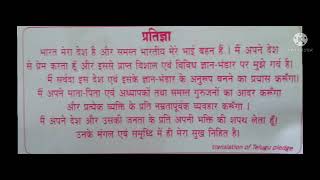 प्रतिज्ञा
भारत मेरा देश है और समस्त भारतीय मेरे भाई बहन हैं । मैं अपने देश
से प्रेम करता हूँ और इससे प्राप्त विशाल एवं विविध ज्ञान-भंडार पर मुझे गर्व है।
मैं सर्वदा इस देश एवं इसके ज्ञान-भंडार के अनुरूप बनने का प्रयास करूँगा।
मैं अपने माता-पिता एवं अध्यापकों तथा समस्त गुरुजनों का आदर करूँगा
और प्रत्येक व्यक्ति के प्रति नम्रतापूर्वक व्यवहार करूँगा ।
मैं अपने देश और उसकी जनता के प्रति अपनी भक्ति की शपथ लेता हूँ।
उनके मंगल एवं समृद्धि में ही मेरा सुख निहित है।
translation of Telugu pledge